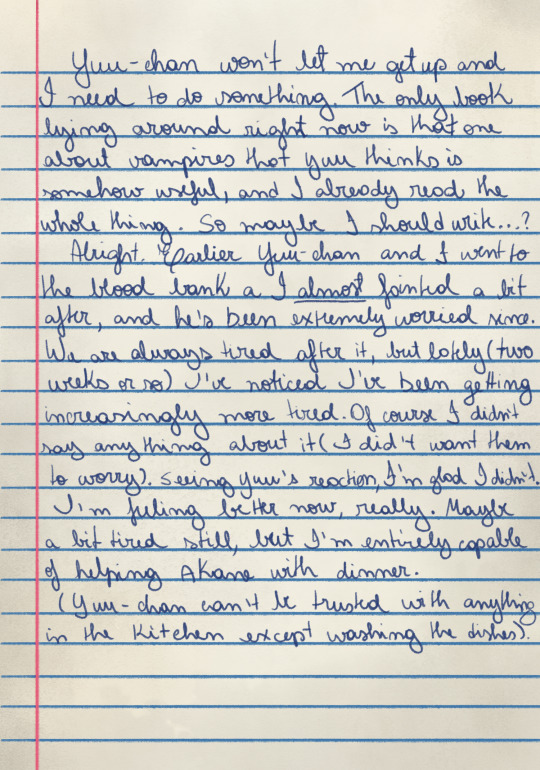 Yuu-chan won't let me get up and
I need to do something. The only book
lying around right now is that one
about vampires that yuu thinks is
somehow useful, and I already read the
whole thing. So maybe I should write...?
Alright. Earlier Yuu-chan and I went to
the blood bank a I almost fainted a bit
after, and he's been extremely worried since.
We are always tired after it, but lately (two
weeks or so) I've noticed I've been getting
increasingly more tired. Of course I didn't
say anything about it (I didn't want them
to worry). Seeing yuu's reaction, I'm glad I didn't.
I'm feling better now, really. Maybe
a bit tired still, but I'm entirely capable
of helping Akane with dinner.
(Yuu-chan can't be trusted with anything
in the kitchen except washing the dishes).